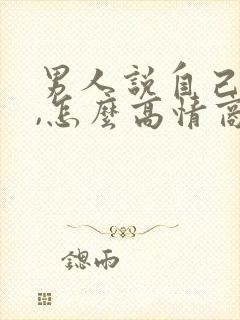 男人說自己
,怎麼高情商
鍶雨